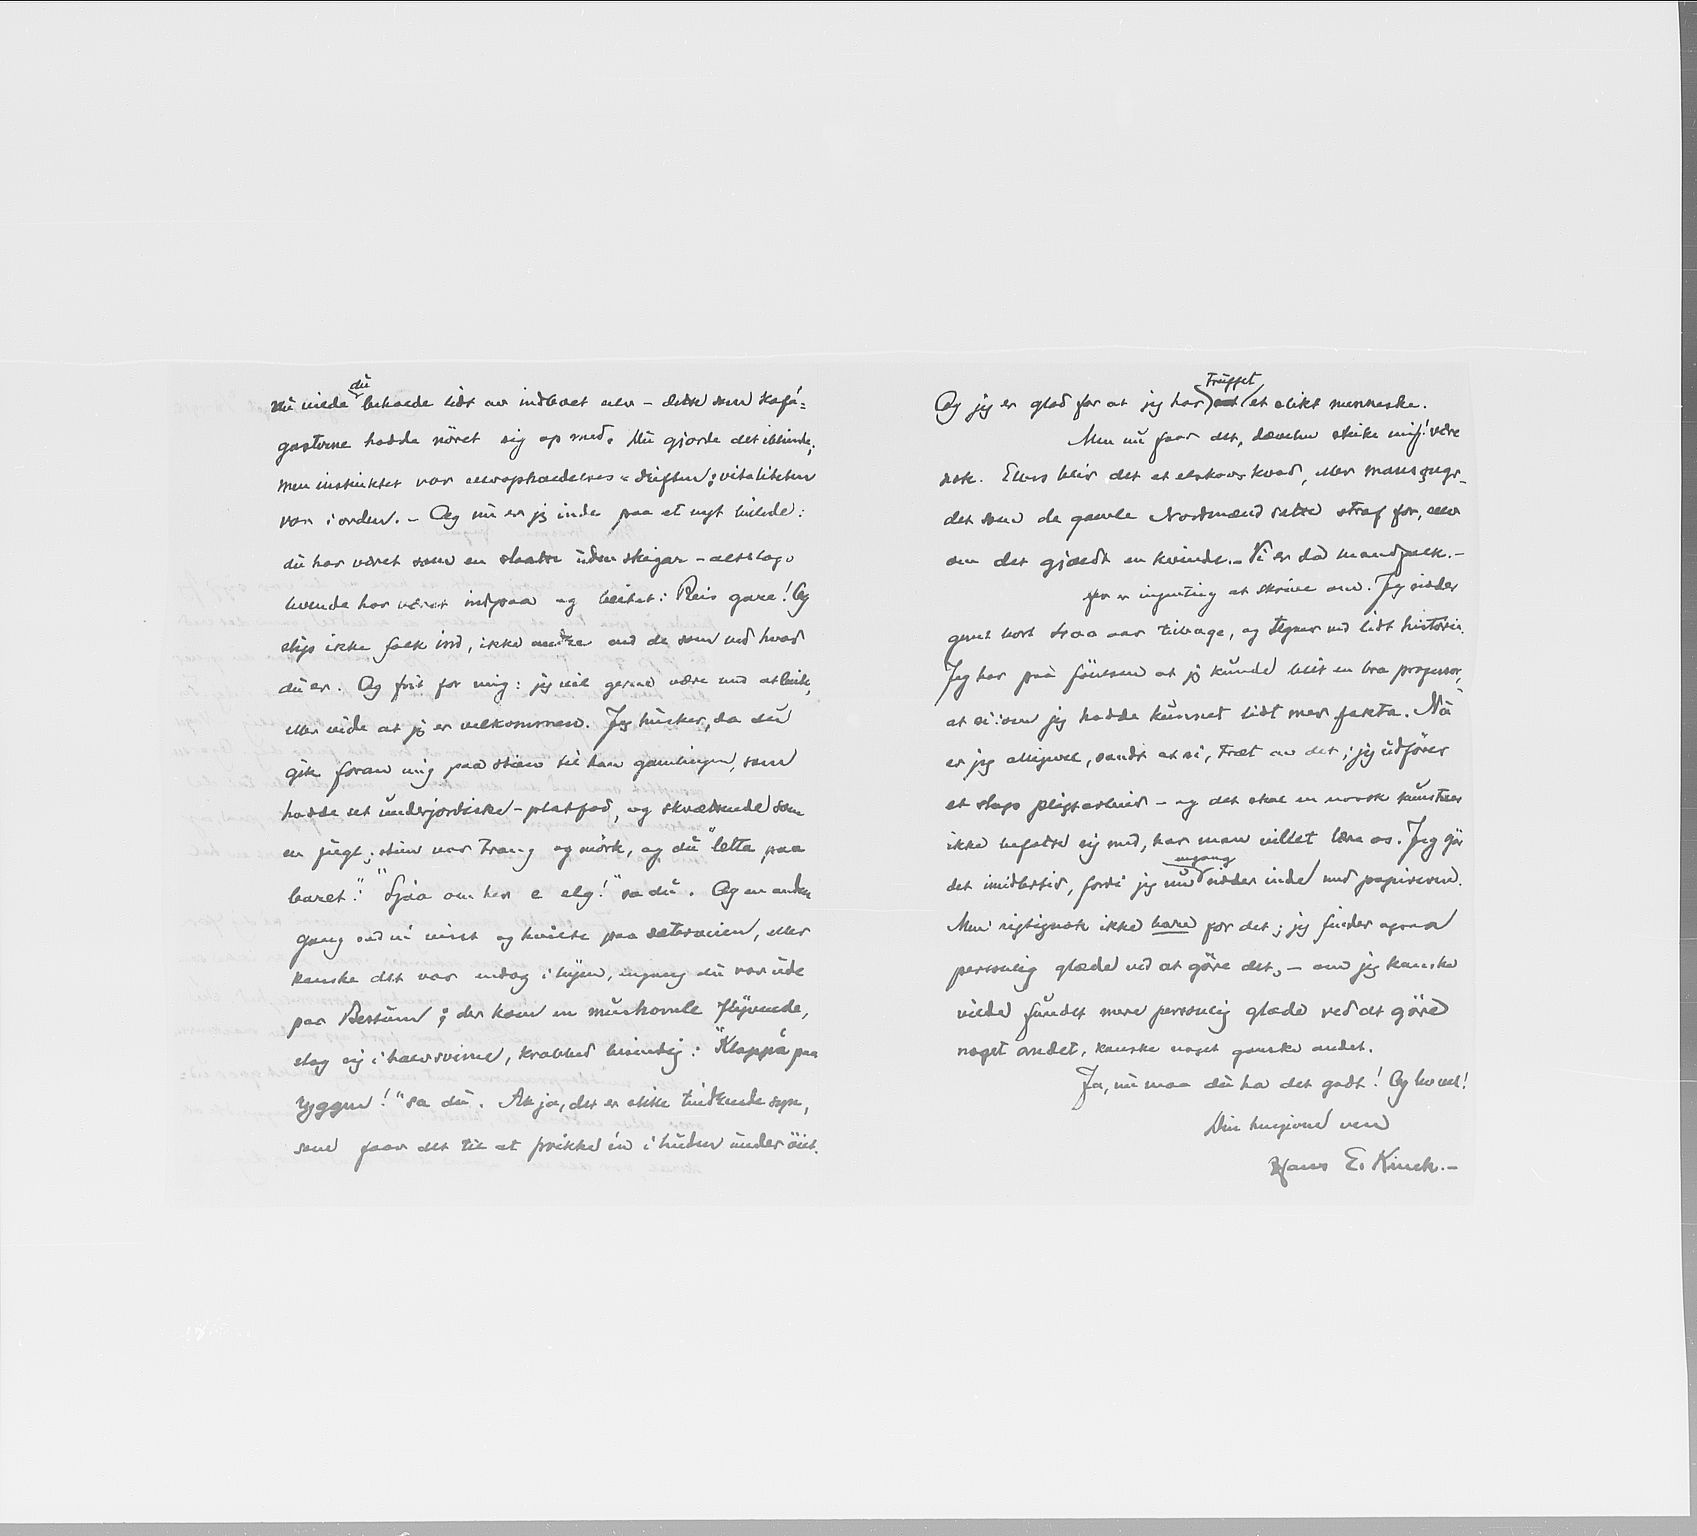 du
Nu vilde beholde lidt av indlevet selv – dette som kafé-
gasterne hadde nöret sig op med. Nu gjorde det blinde,
men instinktet var selvopholdelses-driften; vitaliteten
var i orden. – Og nu er jeg inde paa et nyt billede:
du har været som en slaatte uten skigar – alslags
hvende har været indpaa og beitet: Reis gare! Og
slip ikke folk ind, ikke andre end de som ved hvad
du er. Og frit for mig: jeg vil gerne være med at beite,
eller vide at jeg er velkommen. Jeg husker, da du
gik foran mig paa stien til han gamlingen, som
hadde set underjordiske – platfod, og skvættende som
en fugl; stien var trang og mörk, og du "letta paa
baret": "Sjaa om her e elg!" sa du. Og en anden
gang sad vi visst og hvilte paa sæterveien, eller
kanske det var nedag i byen, engang du var ude
paa Bestum; der kom en murhomle flyvende,
slog sig i halvsvime, krabbed lisindig: "Klappå paa
ryggen!" sa du. Ak ja, det er slike tindrende syn,
som faar det til at prikke in i huden under öiet.
truffet
Og jeg er glad for at jeg har et slikt menneske.
Men nu faar det, dævelen steike mig! være
nok. Ellers blir det et elskovskvad, eller mansöngr –
det som de gamle Nordmænd satte straf for, selv
om det gjældt en kvinde. – Vi er da mandfolk. –
er ingenting at skrive om. Jeg sidder
gemt bort 400 aar tilbage, og tegner ned lidt historie.
Jeg har paa fölelsen at jeg kunde blit en bra professor,
at si: om jeg hadde kunnet lidt mer fakta. Nå
er jeg alligevel, sandt at si, træt av det; jeg udförer
et slags pligtarbeid – og det skal en norsk kunstner
ikke befatte sig med, har man villet lære os. Jeg gör
engang
det imidlertid, fordi jeg nu sidder inde med papirerne.
Men rigtignok ikke bare for det; jeg finder ogsaa
personlig glæde ved at göre det, – om jeg kanske
vilde fundet mere personlig glæde ved at göre
noget andet, kanske noget ganske andet.
Ja, nu maa du ha det godt! Og lev vel!
Din hengivne ven
Hans E. Kinck. –